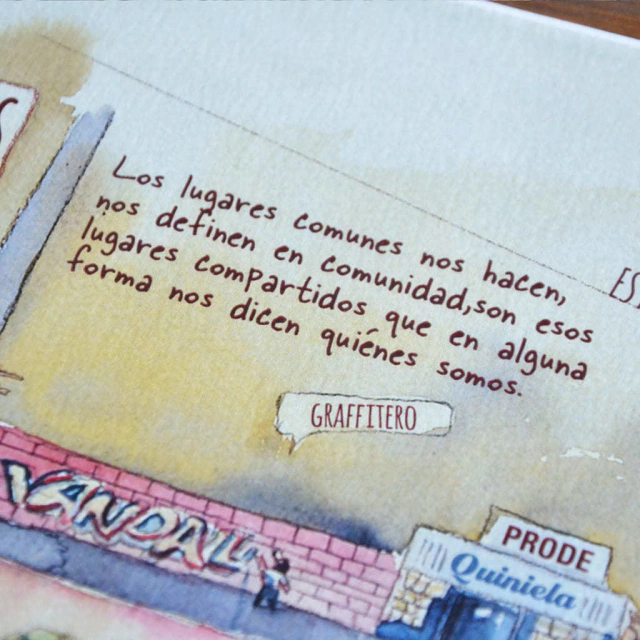 Los lugares comunes nos hacen,
nos definen en comunidad,son esos
lugares compartidos que en alguna
forma nos dicen quiénes somos.
GRAFFITERO
PRODE
Quiniela